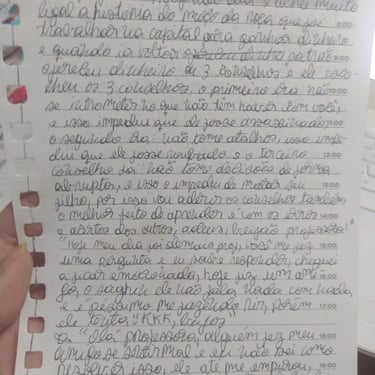 legal a história do moço da roça que foi 8:00
trabalhar na capital para ganhar dinheiro
e quando ia voltar o patrão
ofereceu dinheiro ou 3 conselhos e ele esco-
lheu os 3 conselhos, o primeiro era não
se intrometer no que não tem haver com você,
e isso impediu que ele fosse assassinado,
o segundo era: não tome atalhos, isso impe-
diu que ele fosse roubado e o terceiro
conselho foi: não tome decisões de forma 12:00
abruptas, e isso o impediu de matar seu
filho, por isso vou aderir os conselhos também 13:00
o melhor jeito de aprender é com os erros
e acertos dos outros, adeus, beijão professora! 14:00
"Hoje meu dia foi demais prof, você me fez
uma pergunta e eu soube responder, cheguei 15:00
a ficar emocionada, hoje fiz um ami-
go, o não fala nada com nada, 16:00
e é péssimo me fazendo rir, porém
ele tenta, KKK, beijos" 17:00
"Olá professora, alguém fez meu 18:00
amigo se sentir mal e eu não sei como
resolver isso, ele até me empurrou,